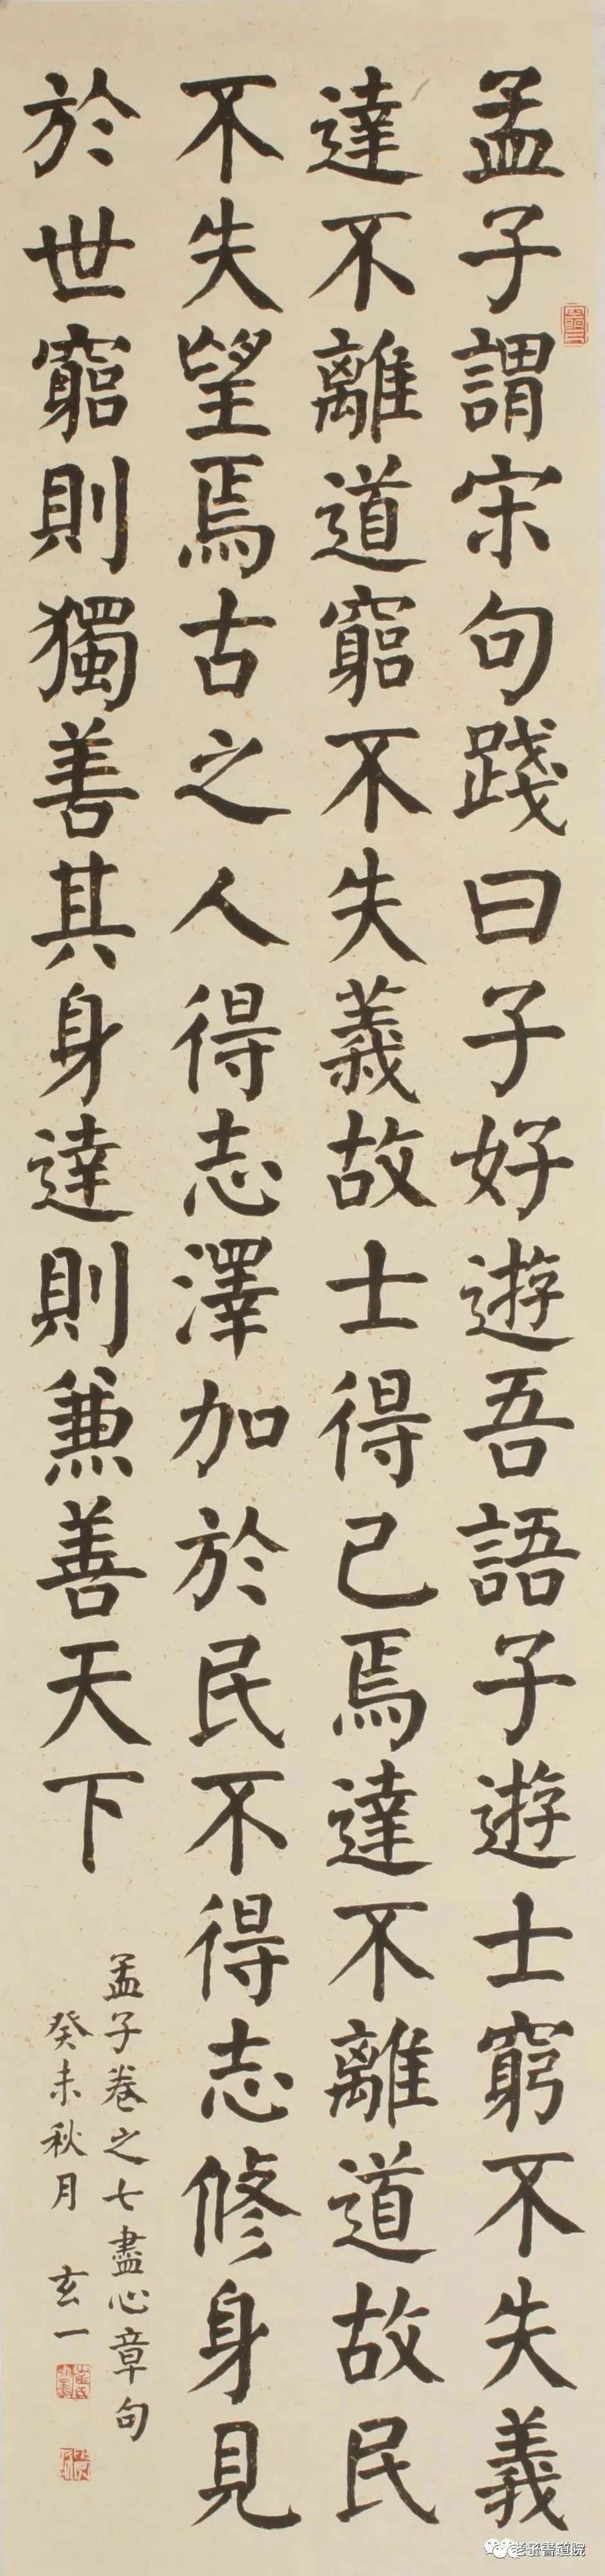 孟子謂宋句踐曰子好遊吾語子遊士窮不失義
達不離道窮不失義故士得己焉達不離道故民
不失望焉古之人得志澤加於民不得志修身見
於世窮則獨善其身達則兼善天下
孟子卷之七盡心章句
癸未秋月 玄一
老子書道院